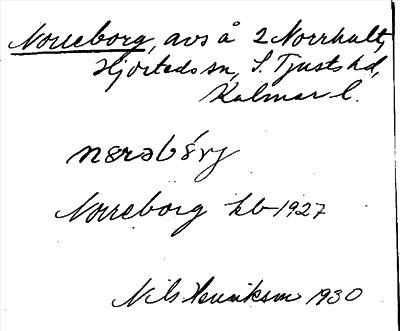 Norreborg, avs å 2 Norrhult,
Hjorteds sn, S. Tjusts hd,
Kalmar l.
Norreborg hb 1927
Nils Henriksson 1930